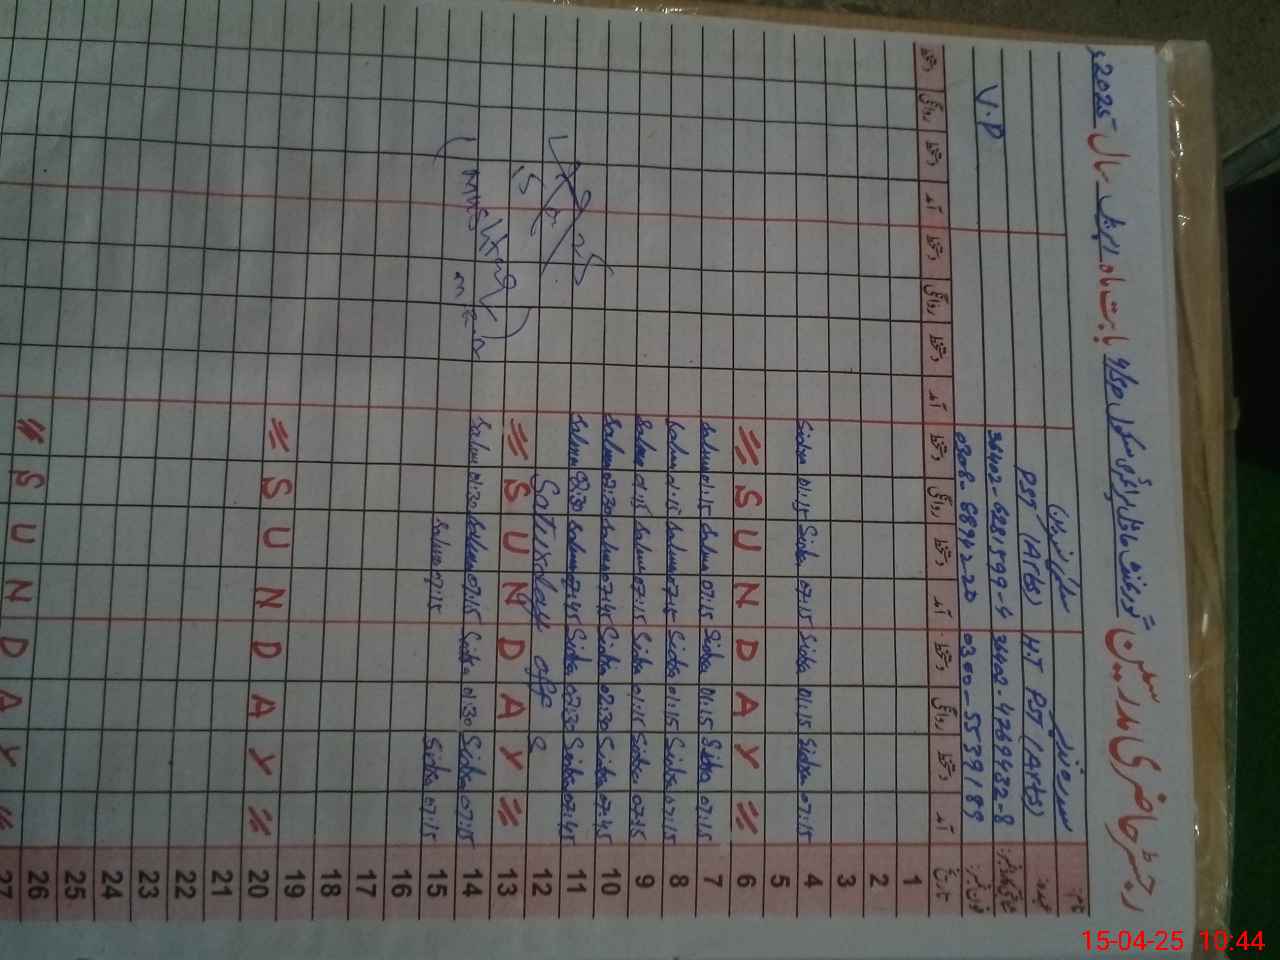 رجسٹر حاضری مدرسین گورنمنٹ بابت ماہ اپریل سال 2025ء
نام
عہدہ
H.T PST (Arts) PST (Arts)
V.P
0300-5539189 0308-6894220
تاریخ آمد دستخط روانگی دستخط آمد دستخط روانگی دستخط آمد دستخط روانگی دستخط آمد دستخط روانگی دستخط
1
2
3
4 07:15 Sidra 01:15 Sidra 07:15 Sidra 01:15 Sidra
5
6 = S U N D A Y =
7 07:15 Sidra 01:15 Sidra 07:15 Salma 01:15 Salma
8 07:15 Sidra 01:15 Sidra 07:15 Salma 01:15 Salma
9 07:15 Sidra 01:15 Sidra 07:15 Salma 01:15 Salma
10 07:45 Sidra 02:30 Sidra 07:45 Salma 02:30 Salma
11 07:45 Sidra 02:30 Sidra 07:45 Salma 02:30 Salma
12 S Saturday off
13 = S U N D A Y =
14 07:15 Sidra 01:30 Sidra 07:15 Salma 01:30 Salma
15 07:15 Sidra 07:15 Salma
16
17
18
19
20 = S U N D A Y =
21
22
23
24
25
26
27 = S U N D A Y =
15-04-25 10:44